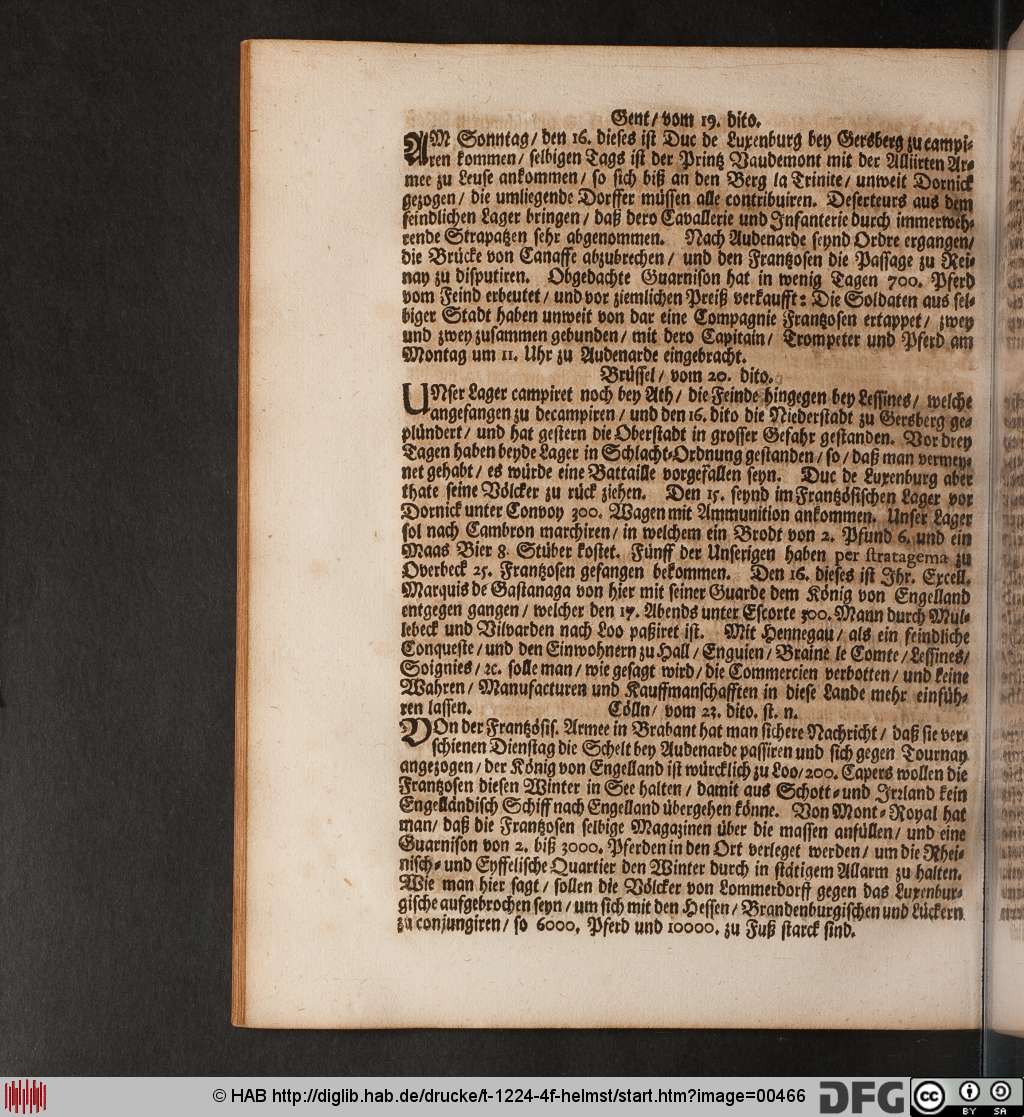 Gent/ vom 19. dito.
AM Sonntag/ den 16. dieses ist Duc de Luxenburg bey Gersberg zu campi-
ren kommen/ selbigen Tags ist der Printz Vaudemont mit der Alliirten Ar-
mee zu Leuse ankommen/ so sich biß an den Berg la Trinite/ unweit Dornick
gezogen/ die umliegende Dorffer müssen alle contribuiren. Deserteurs aus dem
feindlichen Lager bringen/ daß dero Cavallerie und Infanterie durch immerweh-
rende Strapatzen sehr abgenommen. Nach Audenarde seynd Ordre ergangen/
die Brücke von Canaffe abzubrechen/ und den Frantzosen die Passage zu Rei-
nay zu disputiren. Obgedachte Guarnison hat in wenig Tagen 700. Pferd
vom Feind erbeutet/ und vor ziemlichen Preiß verkaufft: Die Soldaten aus sel-
biger Stadt haben unweit von dar eine Compagnie Frantzosen ertappet/ zwey
und zwey zusammen gebunden/ mit dero Capitain/ Trompeter und Pferd am
Montag um 11. Uhr zu Audenarde eingebracht.
Brüssel/ vom 20. dito.
UNser Lager campiret noch bey Ath/ die Feinde hingegen bey Lessines/ welche
angefangen zu decampiren/ und den 16. dito die Niederstadt zu Gersberg ge-
plündert/ und hat gestern die Oberstadt in grosser Gefahr gestanden. Vor drey
Tagen haben beyde Lager in Schlacht-Ordnung gestanden/ so/ daß man vermey-
net gehabt/ es würde eine Battaille vorgefallen seyn. Duc de Luxenburg aber
thate seine Völcker zu rück ziehen. Den 15. seynd im Frantzösischen Lager vor
Dornick unter Convoy 300. Wagen mit Ammunition ankommen. Unser Lager
sol nach Cambron marchiren/ in welchem ein Brodt von 2. Pfund 6. und ein
Maas Bier 8. Stüber kostet. Fünff der Unserigen haben per stratagema zu
Overbeck 25. Frantzosen gefangen bekommen. Den 16. dieses ist Ihr. Excell.
Marquis de Gastanaga von hier mit seiner Guarde dem König von Engelland
entgegen gangen/ welcher den 17. Abends unter Escorte 300. Mann durch Mul-
lebeck und Vilvarden nach Loo paßiret ist. Mit Hennegau/ als ein feindliche
Conqueste/ und den Einwohnern zu Hall/ Enguien/ Braine le Comte/ Lessines/
Soignies/ ꝛc. solle man/ wie gesagt wird/ die Commercien verbotten/ und keine
Wahren/ Manufacturen und Kauffmanschafften in diese Lande mehr einfüh-
ren lassen. Cölln/ vom 23. dito. st. n.
VOn der Frantzösis. Armee in Brabant hat man sichere Nachricht/ daß sie ver-
schienen Dienstag die Schelt bey Audenarde passiren und sich gegen Tournay
angezogen/ der König von Engelland ist würcklich zu Loo/ 200. Capers wollen die
Frantzosen diesen Winter in See halten/ damit aus Schott- und Irrland kein
Engelländisch Schiff nach Engelland übergehen könne. Von Mont-Royal hat
man/ daß die Frantzosen selbige Magazinen über die massen anfüllen/ und eine
Guarnison von 2. biß 3000. Pferden in den Ort verleget werden/ um die Rhei-
nisch- und Eyffelische Quartier den Winter durch in stätigem Allarm zu halten.
Wie man hier sagt/ sollen die Völcker von Lommerdorff gegen das Luxenbur-
gische aufgebrochen seyn/ um sich mit den Hessen/ Brandenburgischen und Lückern
zu conjungiren/ so 6000. Pferd und 10000. zu Fuß starck sind.
© HAB http://diglib.hab.de/drucke/t-1224-4f-helmst/start.htm?image=00466
DFG
cc BY SA